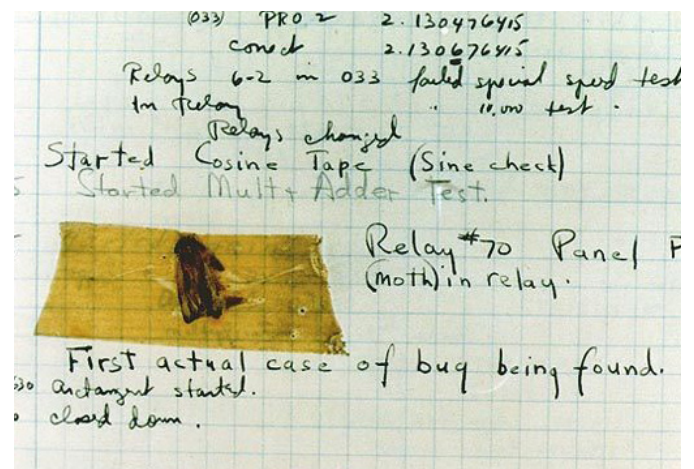 (033) PRO 2 2.130476415
conect 2.130676415
Relays 6-2 in 033 failed special speed test
In Relay " 10,000 test .
Relays changed
Started Cosine Tape (Sine check)
Started Mult + Adder Test.
Relay #70 Panel F
(moth) in relay.
First actual case of bug being found.
630 arctangent started.
closed down .